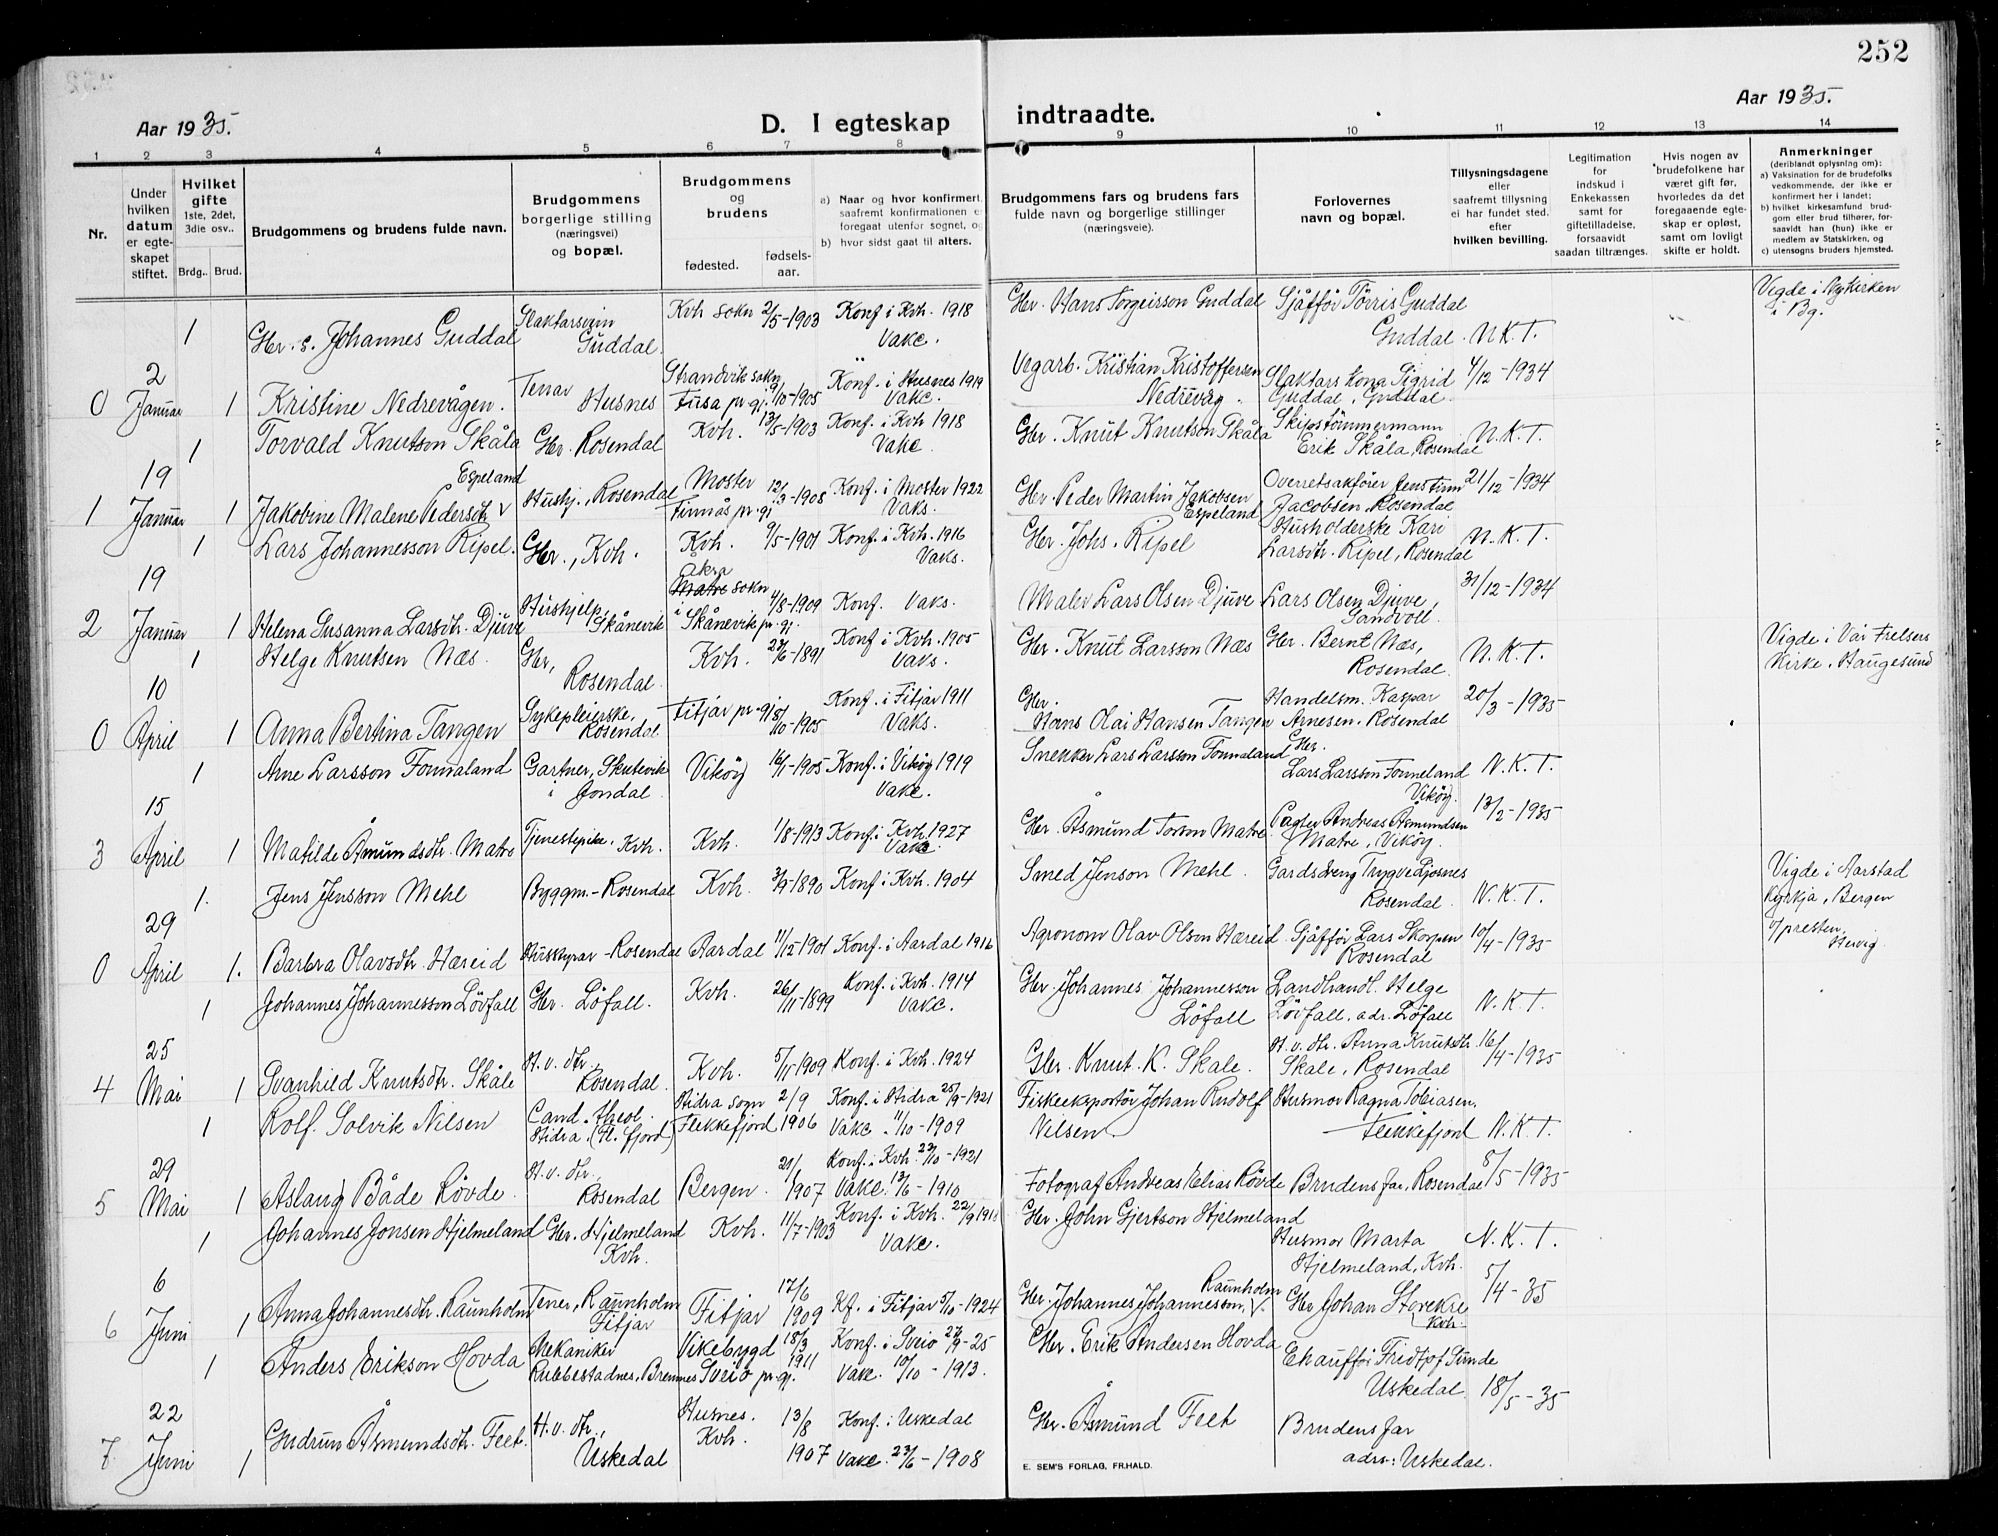 252
Aar 1935.
D. I egteskap indtraadte.
Aar 1935.
1 2 3 4 5 6 7 8 9 10 11 12 13 14
Nr.
Under hvilken datum er egteskapet stiftet.
Hvilket gifte 1ste, 2det, 3die osv..
Brdg.. Brud.
Brudgommens og brudens fulde navn.
Brudgommens borgerlige stilling (næringsvei) og bopæl.
Brudgommens og brudens
fødested. fødselsaar.
a) Naar og hvor konfirmert,
saafremt konfirmationen e
foregaat utenfor sognet, og
b) hvor sidst gaat til alters.
Brudgommens fars og brudens fars
fulde navn og borgerlige stillinger
(næringsveie).
Forlovernes
navn og bopæl.
Tillysningsdagene
eller
saafremt tillysning
ei har fundet sted.
efter
hvilken bevilling.
Legitimation
for
indskud i
Enkekassen
samt for
giftetilladelse,
forsaavidt
saadan tiltrænges.
Hvis nogen av
brudefolkene har
været gift før,
hvorledes da det
foregaaende egte-
skap er opløst,
samt om lovligt
skifte er holdt.
Anmerkninger
(deriblandt oplysning om):
a) Vaksination for de brudefolks
vedkommende, der ikke er
konfirmert her i landet;
b) hvilket kirkesamfund brud-
gom eller brud tilhører, for-
saavidt han (hun) ikke er
medlem av Statskirken, og
c) utensogns bruders hjemsted.
1 Gbr. s. Johannes Guddal Slaktarsvein Guddal. Kvh sokn 2/5-1903 Konf i Kvh. 1918 Vakc. Gbr. Hans Torgeirsson Guddal Sjåffør Tørris Guddal Guddal. N.K.T. Vigde i Nykirken i Bg.
0 2 Januar 1 Kristine Nedrevågen. Tenar Husnes Strandvik sokn Fusa pr.gj. 9/10-1905 Konf. i Husnes 1919 Vakc. Vegarb. Kristian Kristoffersen Nedrevåg. Slaktars kona Sigrid Guddal, Guddal. 4/12-1934
1 Torvald Knutson Skåla Gbr. Rosendal Kvh. 13/5-1903 Konf. i Kvh 1918 Vakc. Gbr. Knut Knutson Skåla Skipstømmermann Erik Skåla, Rosendal N.K.T.
1 19 Januar 1 Jakobine Malene Pedersdtr Espeland Hushj., Rosendal Moster Finnås pr.gj 12/3-1908 Konf. i Moster 1922 Vaks. Gbr. Peder Martin Jakobsen Espeland Overretsakfører Jacobsen, Rosendal 21/12-1934
1 Lars Johannesson Ripel. Gbr., Kvh. Kvh. 9/5-1901 Konf. i Kvh. 1916 Vaks. Gbr. Johs. Ripel Husholderske Kari Larsdtr. Ripel, Rosendal N.K.T.
2 19 Januar 1 Helena Susanna Larsdtr. Djuve Hushjelp, Skånevik Åkra Matre sokn i Skånevik pr.gj. 4/8-1909 Konf. Vaks. Maler Lars Olsen Djuve Lars Olsen Djuve, Sandvoll. 31/12-1934
1 Helge Knutsen Næs. Gbr, Rosendal. Kvh. 23/6-1891 Konf. i Kvh. 1905 Vaks. Gbr. Knut Larsson Næs Gbr. Bernt Næs, Rosendal N.K.T. Vigde i Vår Frelsers Kirke. Haugesund
0 10 April 1 Anna Bertina Tangen Sykepleierske, Rosendal Fitjar pr.gj 8/10-1905 Konf. i Fitjar 1911 Vaks. Gbr. Hans Olai Hansen Tangen Handelsm. Kaspar Arnesen. Rosendal 20/3-1935
1 Arne Larsson Fonnaland Gartner, Skutevik i Jondal. Vikøy 16/1-1905 Konf. i Vikøy 1919 Vakc. Snekker Lars Larsson Fonnaland Gbr. Lars Larsson Fonneland Vikøy. N.K.T.
3 15 April 1 Matilde Åmundsdtr. Matre Tjenestepike. Kvh. Kvh. 1/8-1913 Konf. i Kvh. 1927 Vakc. Gbr. Åsmund Torson Matre Andreas Åsmundsen Matre, Vikøy. 13/2-1935
1. Jens Jensson Mehl Byggm.-Rosendal Kvh. 3/9-1890 Konf. i Kvh. 1904 Smed Jenson Mehl Gardsdreng Trygve Djosnes Rosendal. N.K.T. Vigde i Aarstad Kyrkja, Bergen
0 29 April 1. Barbra Olavsdtr. Hæreid Huskyrar-Rosendal Aardal 11/12-1901 Konf. i Aardal 1916 Agronom Olav Olson Hæreid. Sjåffør Lars Skorpen Rosendal 10/4-1935 presten
1 Johannes Johannesson Løvfall Gbr. Løfall. Kvh. 26/11-1899 Konf. i Kvh. 1914 Vakc. Gbr Johannes Johannesson Løfall Landhandl. Helge Løvfall, adr. Løfall N.K.T.
4 25 Mai 1 Svanhild Knutsdtr. Skåle H.v. dtr, Rosendal. Kvh. 5/11-1909 Konf. i Kvh. 1924 Gbr. Knut K. Skale. H.v. dtr. Anna Knutsdtr. Skale, Rosendal 16/4-1935
1 Rolf. Solvik Nilsen Cand. theol. Hidra. (Fl. fjord) Hidra sogn Flekkefjord 2/9 1906 Konf. i Hidra 25/9-1921 Vakc. 11/10-1909 Fiskeeksportør Johan Rudolf Nilsen. Husmor Ragna Tobiasen. Flekkefjord N.K.T.
5 29 Mai 1 Aslaug Både Røvde. H.v. dtr., Rosendal Bergen. 21/1 1907 Konf. i Kvh. 23/10-1921 Vakc. 13/6-1910 Fotograf Andreas Elias Røvde Brudens far, Rosendal 8/5-1935
1 Johannes Jonsen Hjelmeland Gbr. Hjelmeland Kvh. Kvh. 11/7-1903 Konf. i Kvh. 22/9 1918 Vakc. Gbr. John Gjertson Hjelmeland Husmor Marta Hjelmeland, Kvh. N.K.T.
6 6 Juni 1 Anna Johannesdtr. Raunholm Tener, Raunholm Fitjar Fitjar 17/6 1909 Kf. i Fitjar 5/10-1924 Gbr. Johannes Johannesson, Raunholm Gbr Johan Storekre Kvh. 5/4-35
1 Anders Erikson Hovda Mekaniker Rubbestadnes, Bremnes Vikebygd Sveio pr.gj. 18/3 1911 Konf. i Sveio 27/9-25 Vakc. 10/10-1913. Gbr. Erik Andersen Hovda Chauffør Fridtjof Sunde Uskedal. 18/5-35
7 22 Juni 1 Gudrun Åsmundsdtr. Feet. H.v. dtr., Uskedal Husnes. Kvh. 13/8 1907 Konf. i Uskedal Vakc. 23/6-1908 Gbr. Åsmund Feet Brudens far adr.: Uskedal.
E. SEM'S FORLAG, FR.HALD.